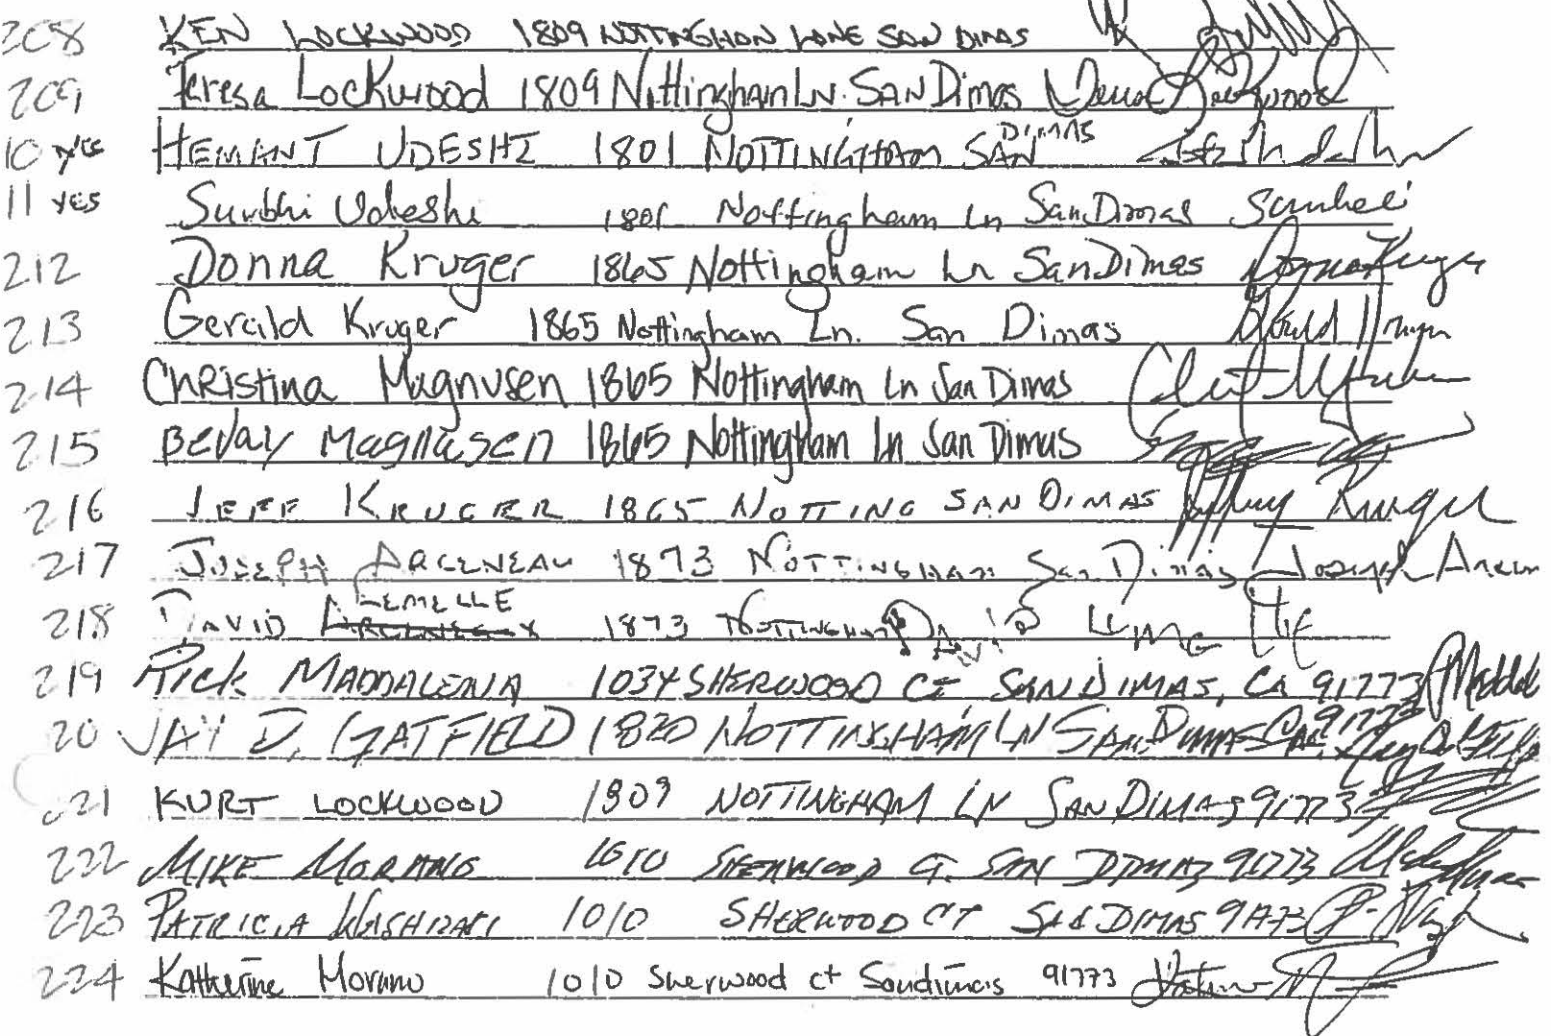 208 KEN LOCKWOOD 1809 NOTTINGHON LANE SAN DIMAS
209 Teresa Lockwood 1809 Nottingham Ln. SAN Dimas
10 YES HEMANT UDESHI 1801 NOTTINGHAM SAN DIMAS
11 YES Surbhi Udeshi 1801 Nottingham Ln San Dimas Surbhi
212 Donna Kruger 1865 Nottingham Ln San Dimas Donna Kruger
213 Gerald Kruger 1865 Nottingham Ln. San Dimas Gerald Kruger
214 Christina Magnusen 1865 Nottingham Ln San Dimas
215 Beday Magnusen 1865 Nottingham Ln San Dimas
216 JEFF KRUGER 1865 NOTTING SAN DIMAS Jeffrey Kruger
217 JOSEPH ARCENEAU 1873 NOTTINGHAM San Dimas Joseph
218 DAVID LEMELLE 1873 NOTTINGHAM David
219 Rick MADDALENA 1034 SHERWOOD CT SAN DIMAS, CA 91773
20 JAY D. GATFIELD 1820 NOTTINGHAM LN SAN DIMAS CA. 91773
221 KURT LOCKWOOD 1809 NOTTINGHAM LN SAN DIMAS 91773
222 MIKE MORANO 1010 SHERWOOD CT. SAN DIMAS 91773
223 PATRICIA 1010 SHERWOOD CT SAN DIMAS 91773
224 Katherine Morano 1010 Sherwood ct Sandimas 91773